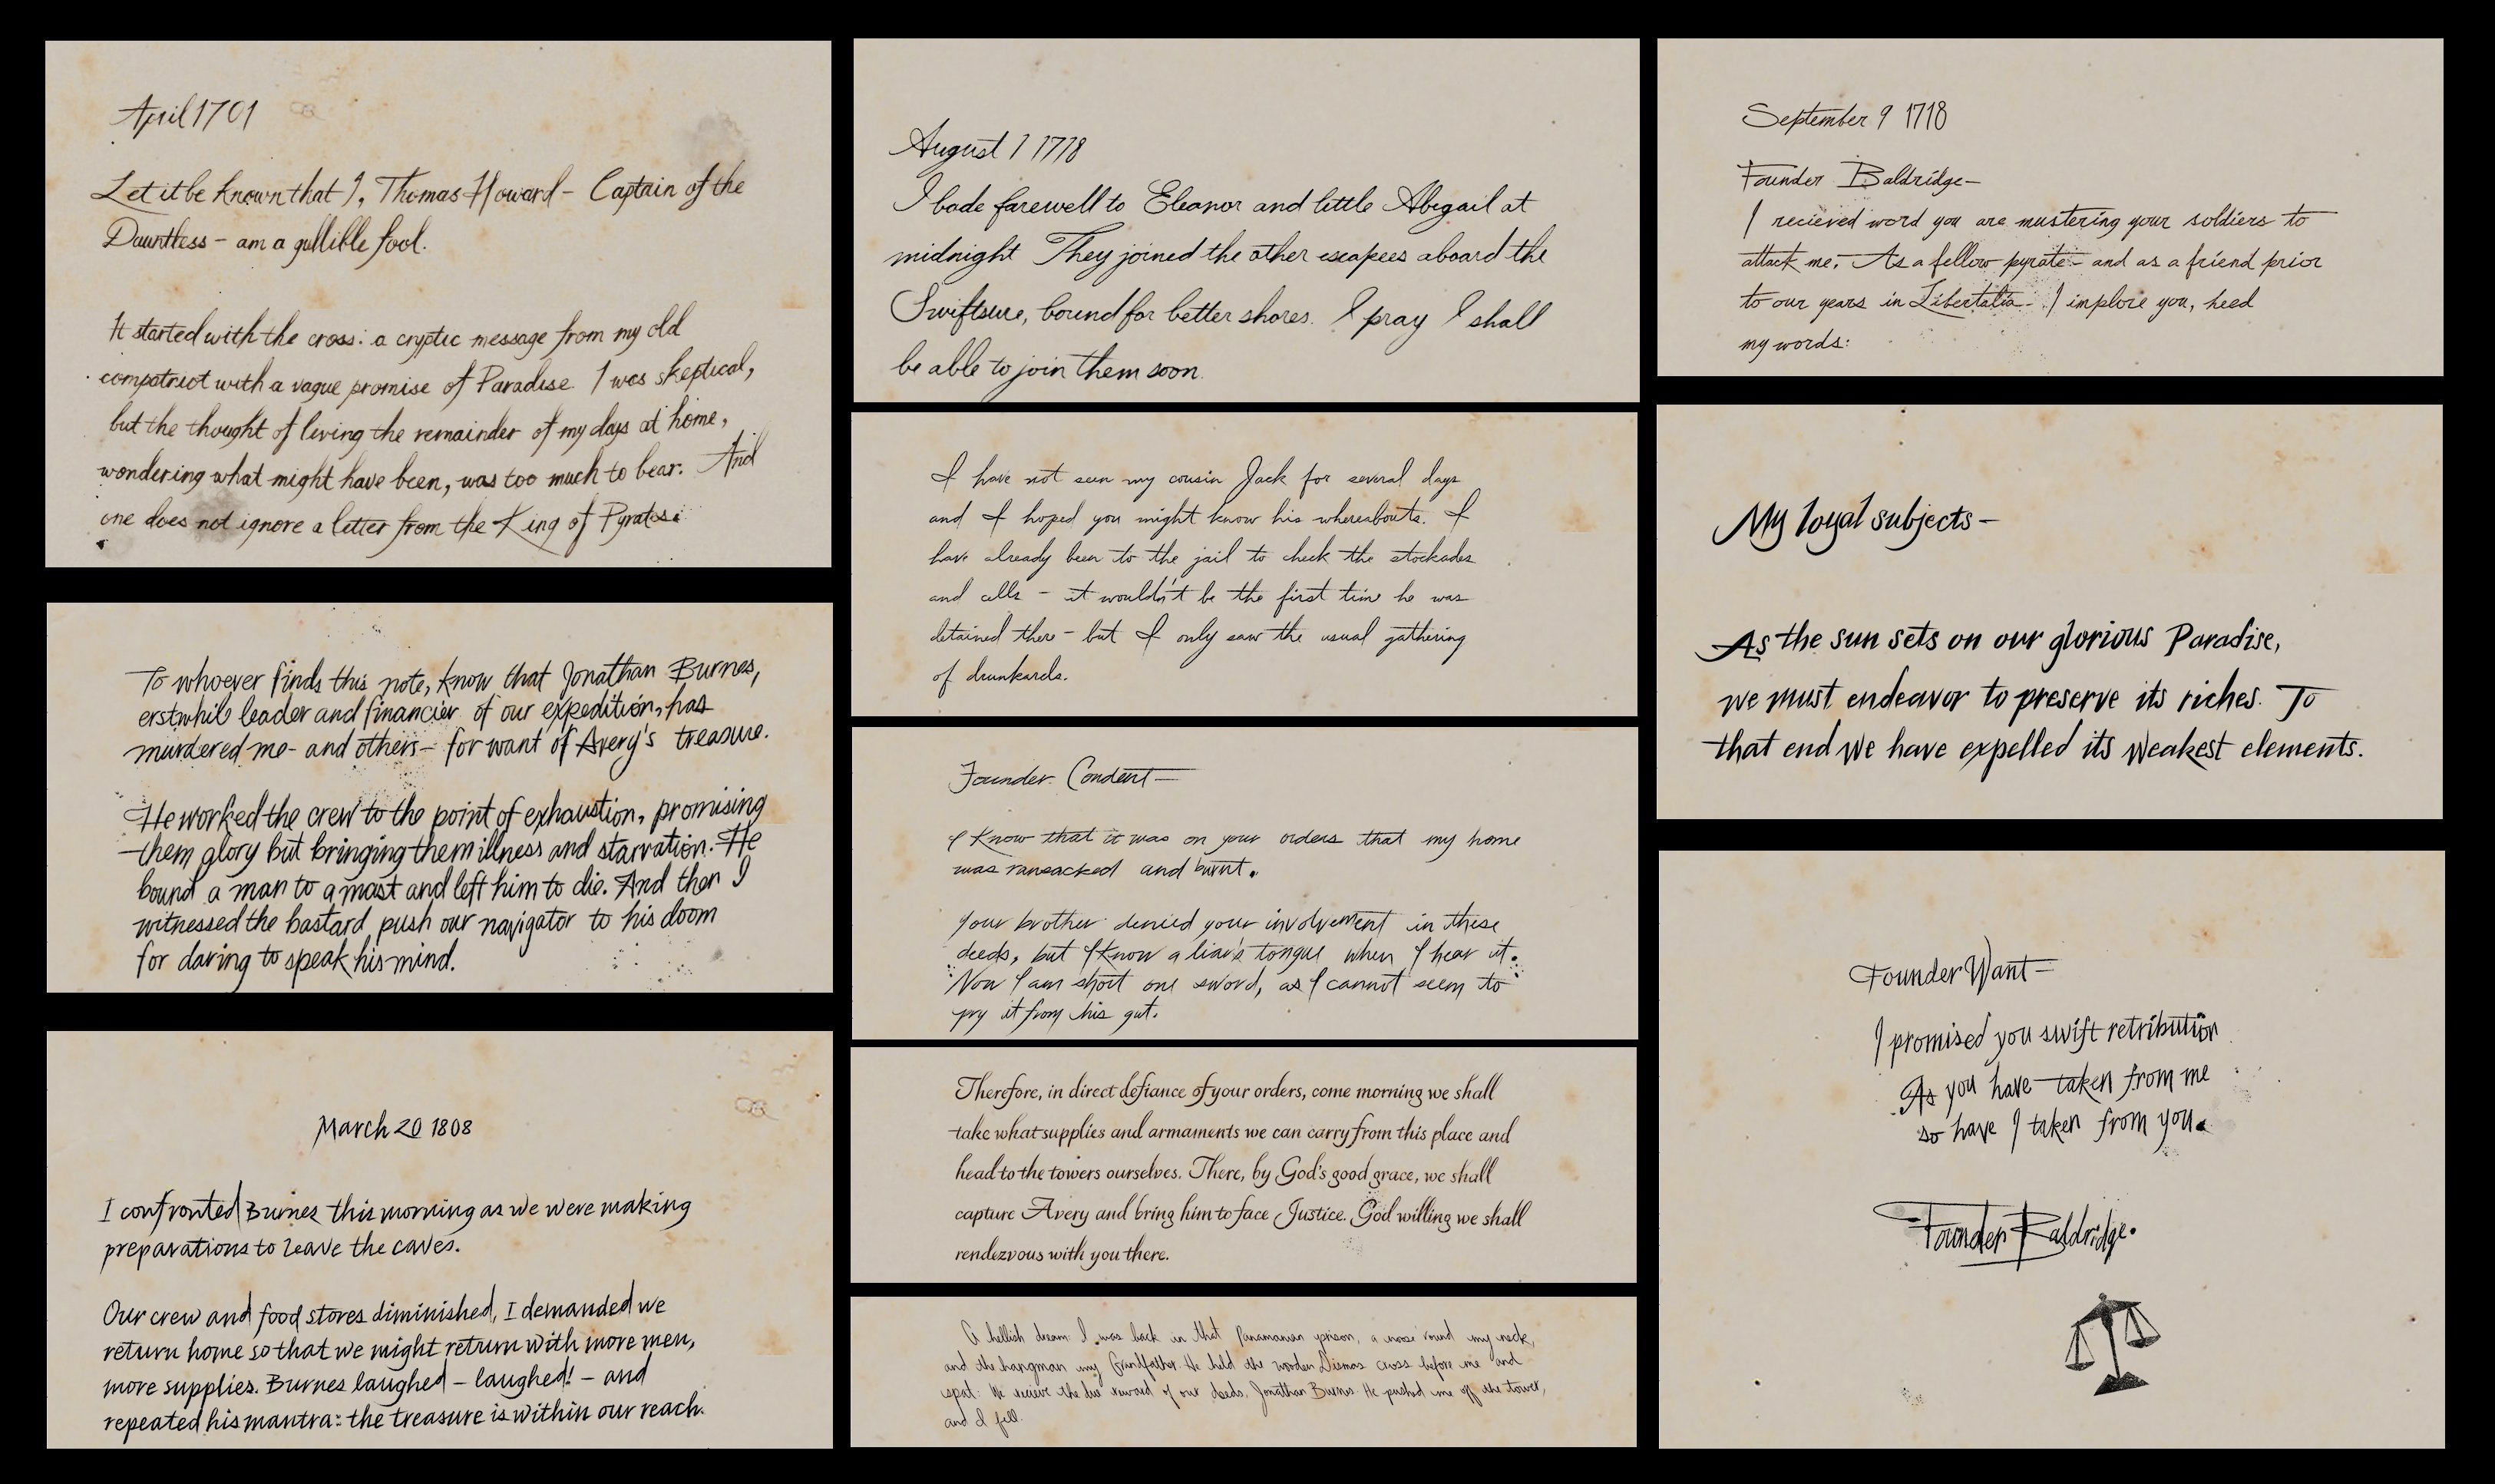 April 1701
Let it be known that I, Thomas Howard - Captain of the
Dauntless - am a gullible fool.
It started with the cross: a cryptic message from my old
compatriot with a vague promise of Paradise. I was skeptical,
but the thought of living the remainder of my days at home,
wondering what might have been, was too much to bear. And
one does not ignore a letter from the King of Pyrates.
To whoever finds this note, know that Jonathan Burnes,
erstwhile leader and financier of our expedition, has
murdered me - and others - for want of Avery's treasure.
He worked the crew to the point of exhaustion, promising
them glory but bringing them illness and starvation. He
bound a man to a mast and left him to die. And then I
witnessed the bastard push our navigator to his doom
for daring to speak his mind.
March 20 1808
I confronted Burnes this morning as we were making
preparations to leave the caves.
Our crew and food stores diminished, I demanded we
return home so that we might return with more men,
more supplies. Burnes laughed - laughed! - and
repeated his mantra: the treasure is within our reach.
August 1 1718
I bade farewell to Eleanor and little Abigail at
midnight They joined the other escapees aboard the
Swiftsure, bound for better shores. I pray I shall
be able to join them soon.
I have not seen my cousin Jack for several days
and I hoped you might know his whereabouts. I
have already been to the jail to check the stockades
and cells - it wouldn't be the first time he was
detained there - but I only saw the usual gathering
of drunkards.
Founder Condent—
I know that it was on your orders that my home
was ransacked and burnt.
Your brother denied your involvement in these
deeds, but I know a liar's tongue when I hear it.
Now I am short one sword, as I cannot seem to
pry it from his gut.
Therefore, in direct defiance of your orders, come morning we shall
take what supplies and armaments we can carry from this place and
head to the towers ourselves. There, by God's good grace, we shall
capture Avery and bring him to face Justice. God willing we shall
rendezvous with you there.
A hellish dream: I was back in that Panamanian prison, a noose round my neck,
and the hangman my Grandfather. He held the wooden Dismas cross before me and
spat: We recieve the due reward of our deeds, Jonathan Burnes. He pushed me off the tower,
and I fell.
September 9 1718
Founder Baldridge—
I recieved word you are mustering your soldiers to
attack me. As a fellow pyrate - and as a friend prior
to our years in Libertalia - I implore you, heed
my words:
My loyal subjects—
As the sun sets on our glorious Paradise,
we must endeavor to preserve its riches. To
that end we have expelled its weakest elements.
Founder Want—
I promised you swift retribution
As you have taken from me
so have I taken from you.
Founder Baldridge.